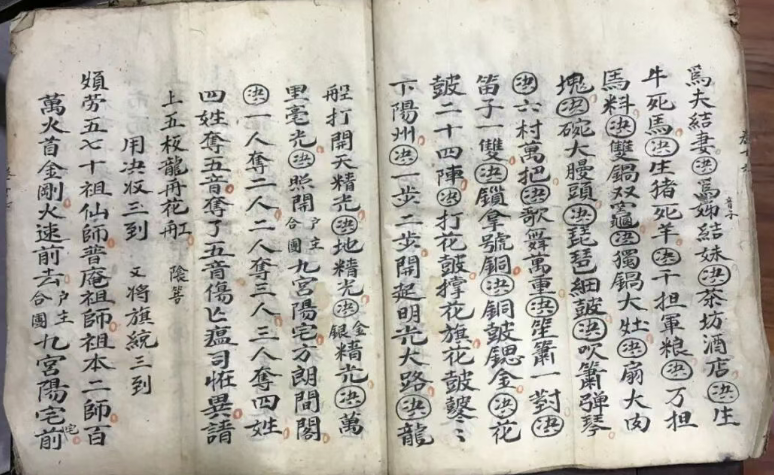 爲夫結妻決爲姊結妹決茶坊酒店決生
牛死馬決生猪死羊決千担軍粮決万担
馬料決雙鍋双竈決獨鍋大灶決扇大肉
塊決碗大饅頭決琵琶細鼓決吹簫彈琴
決六村萬把決歌舞萬重決笙簫一對決
笛子一雙決鎖拿號銅決銅鼓鍶金決花
鼓二十四陣決打花鼓撑花旗花鼓鼕〻
卞陽州決一步二步開起明光大路決龍
船打開天精光決地精光決金銀精光決萬
里毫光決照開户主合團九宮陽宅万朗間閣
決一人奪二人二人奪三人三人奪四姓
四姓奪五音奪了五音傷亡瘟司恠異
上五板龍舟花舡 陰
用決收三到 又將旗統三到
煩劳五七十祖仙師普庵祖師祖本二師百
萬火首金剛火速前去户主合團九宮陽宅前